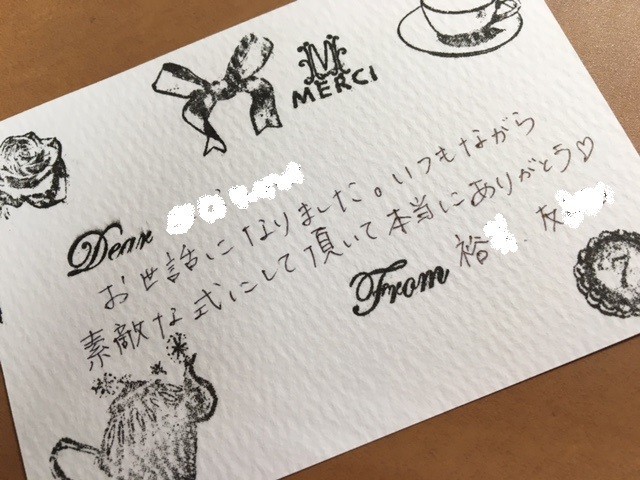 M
MERCI
Dear
お世話になりました。いつもながら
素敵な式にして頂いて本当にありがとう♡
From 裕 友
7